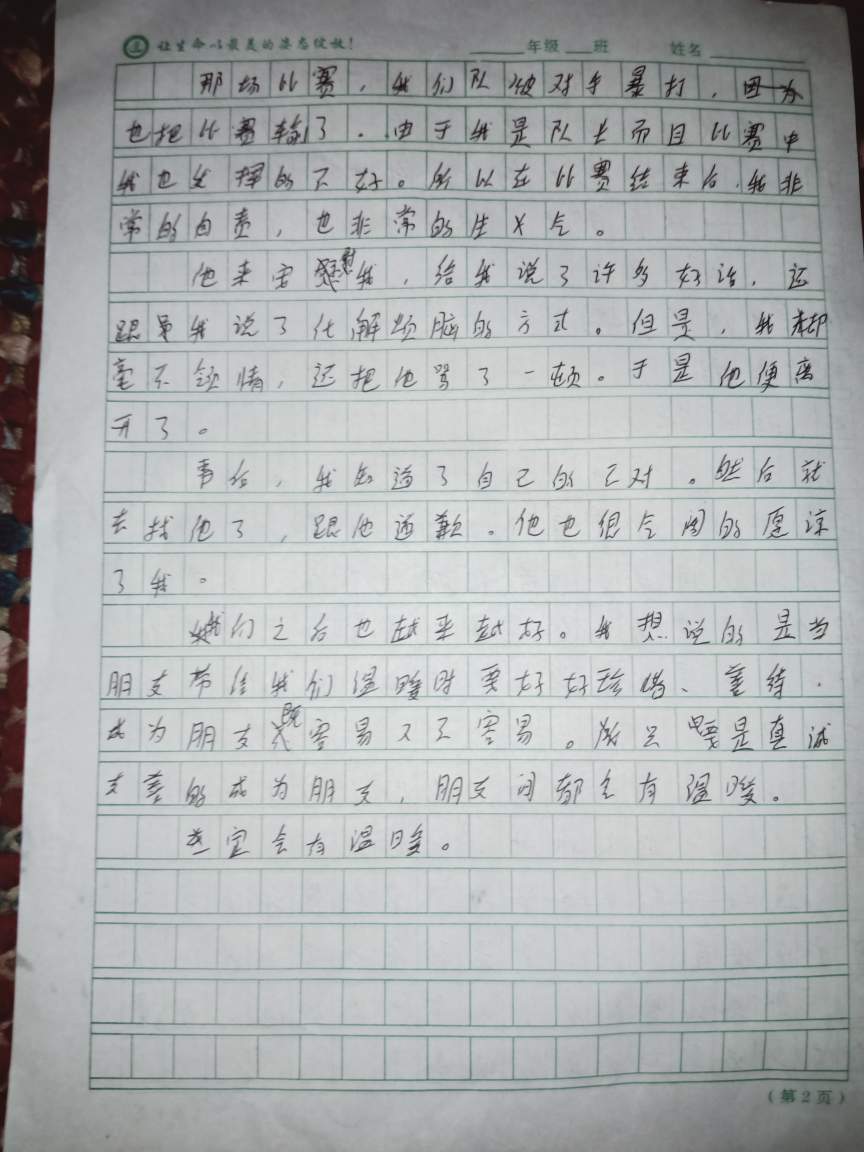 让生命以最美的姿态绽放！ 年级 班 姓名
那场比赛，我们队被对手暴打，因为
也把比赛输了．由于我是队长而且比赛中
我也发挥的不好。所以在比赛结束后．我非
常的自责，也非常的生气。
他来安慰我，给我说了许多好话，还
跟我说了化解烦脑的方式。但是，我却
毫不领情，还把他骂了一顿。于是他便离
开了。
事后，我知道了自己的不对。然后就
去找他了，跟他道歉。他也很的愿谅
了我。
我们之后也越来越好。我想说的是当
朋友带给我们温暖时要好好珍惜、重待．
成为朋友既容易又不容易。要是真诚
友善的成为朋友，朋友间都会有温暖。
定会有温暖。
（第2页）